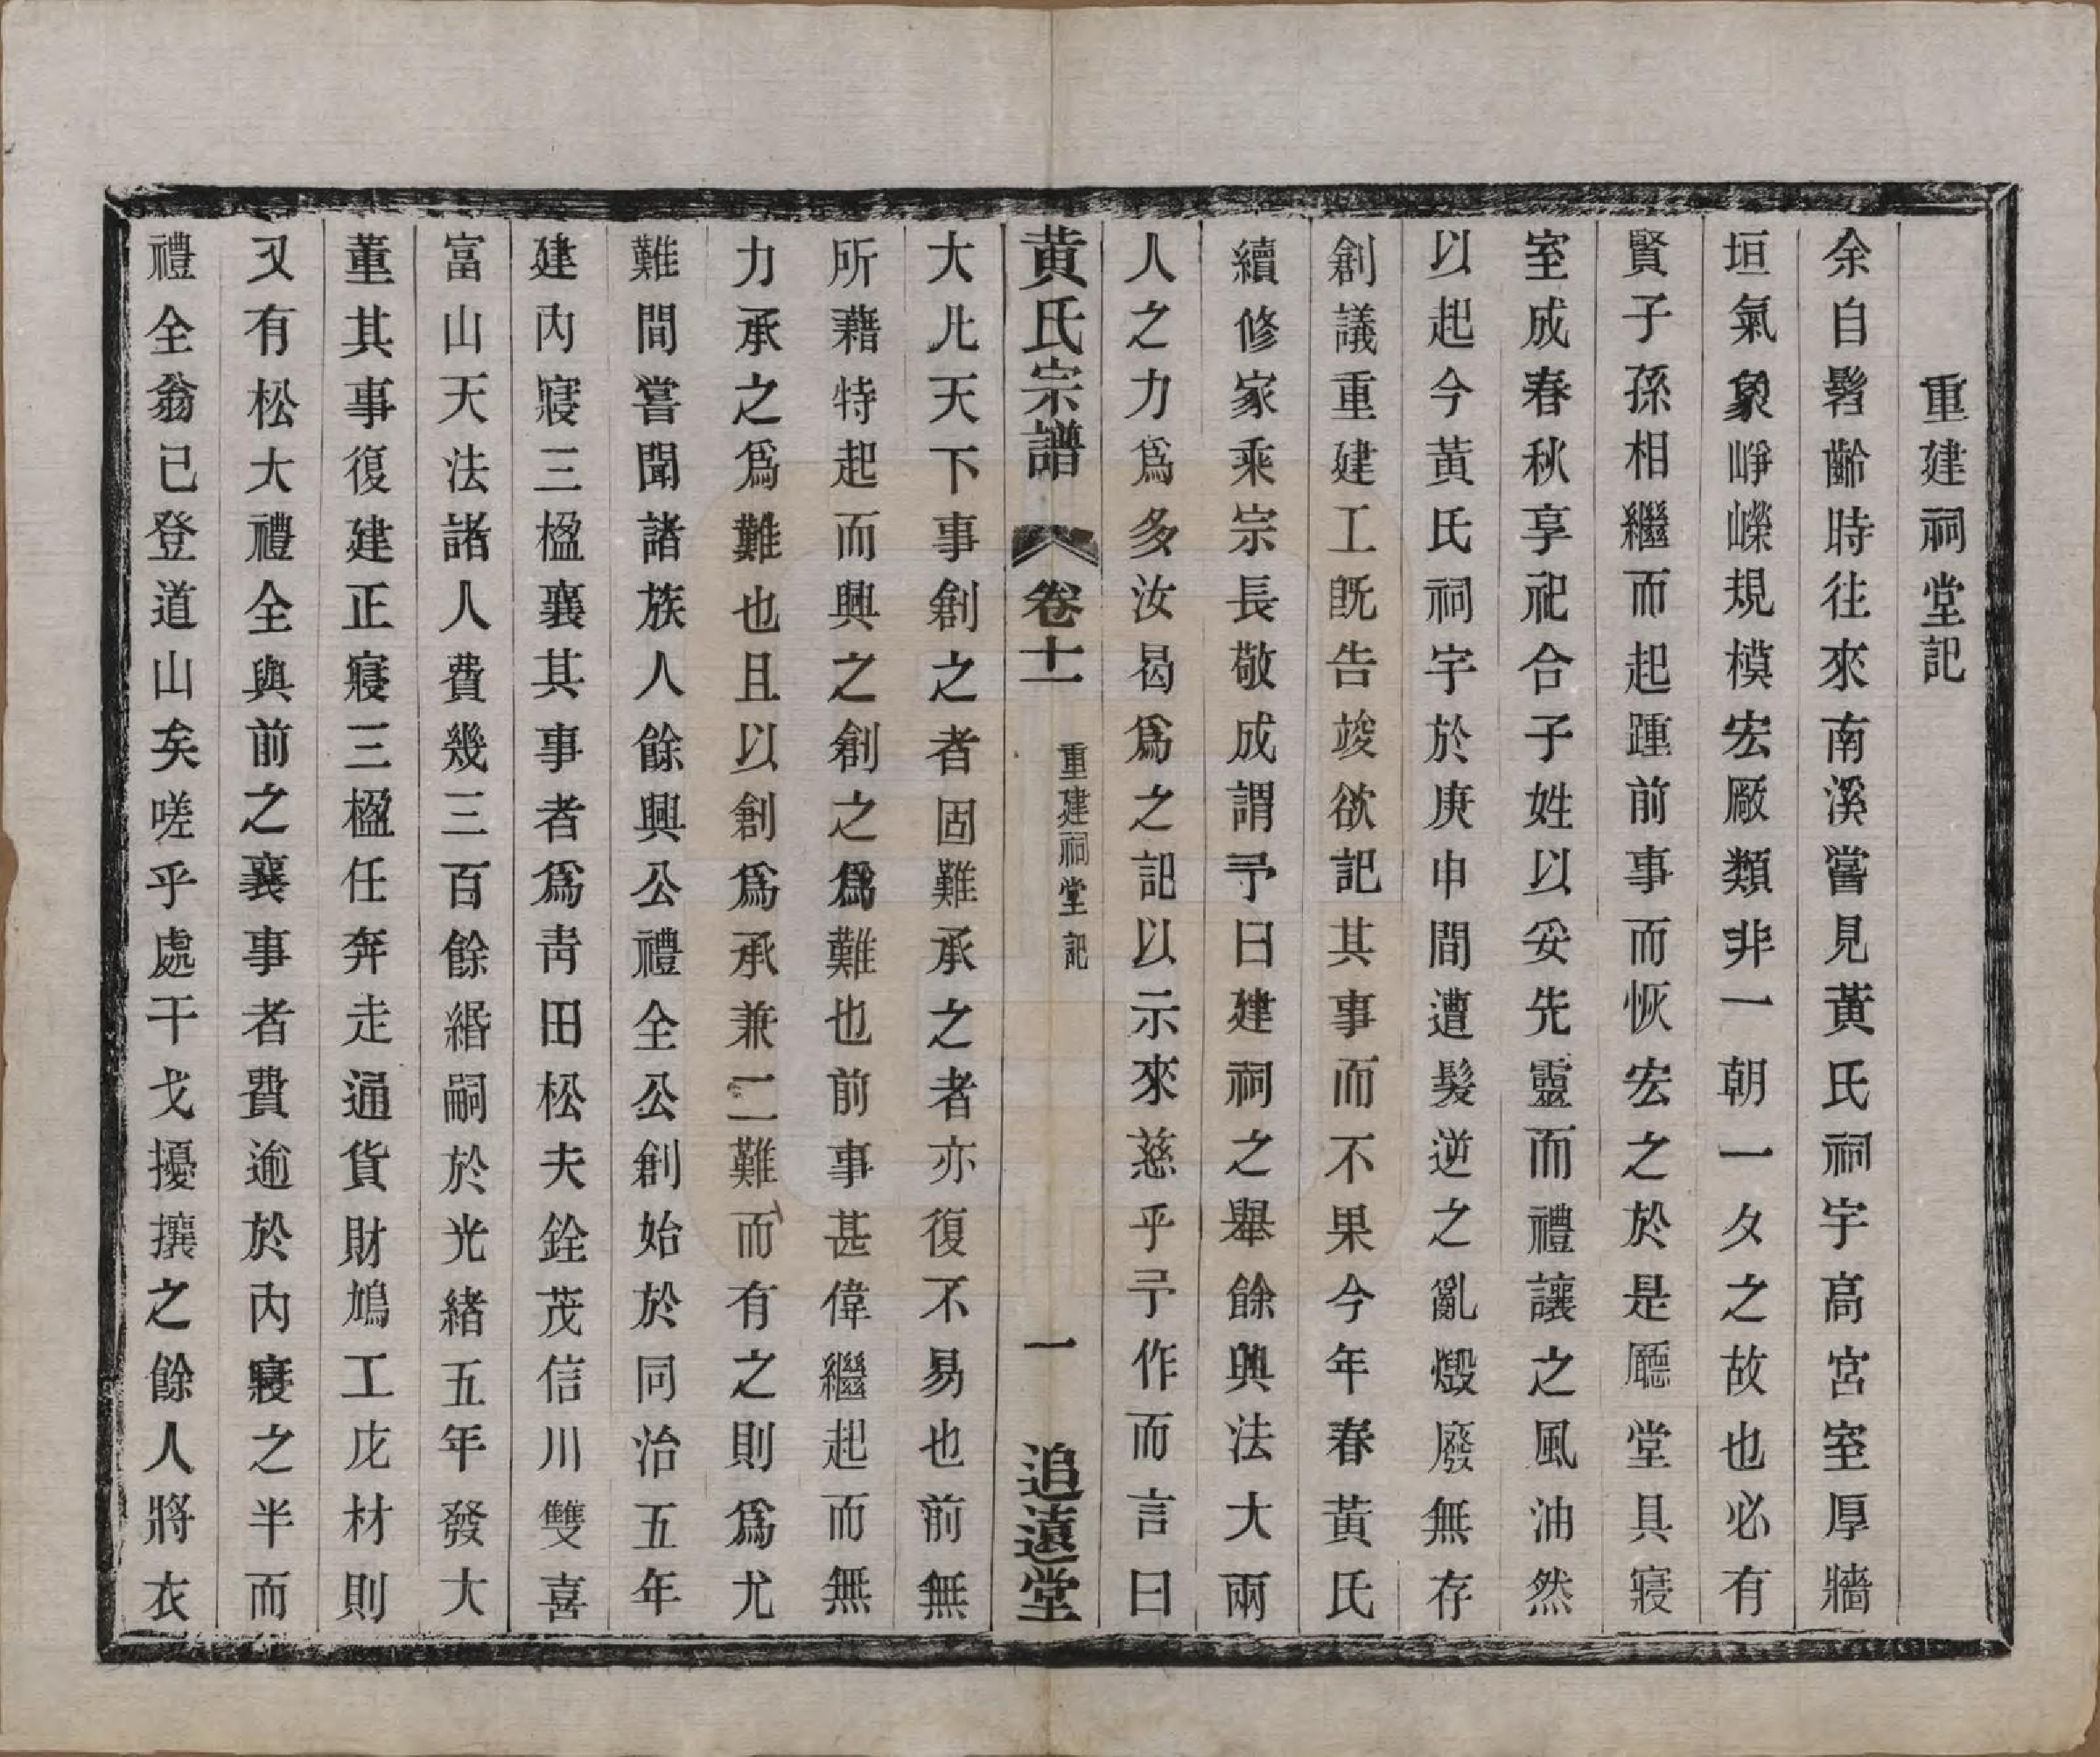 重建祠堂記
余自髫齡時往來南溪嘗見黃氏祠宇高宮室厚牆
垣氣象崢嶸規模宏厰類非一朝一夕之故也必有
賢子孫相繼而起踵前事而恢宏之於是廳堂具寢
室成春秋享祀合子姓以妥先靈而禮讓之風油然
以起今黃氏祠宇於庚申間遭髮逆之亂燬廢無存
創議重建工旣告竣欲記其事而不果今年春黃氏
續修家乘宗長敬成謂予曰建祠之舉餘興法大兩
人之力爲多汝曷爲之記以示來慈乎予作而言曰
黃氏宗譜 卷十一 重建祠堂記 一 追遠堂
大凡天下事創之者固難承之者亦復不易也前無
所藉特起而興之創之爲難也前事甚偉繼起而無
力承之爲難也且以創爲承兼二難而有之則爲尤
難間嘗聞諸族人餘興公禮全公創始於同治五年
建內寢三楹襄其事者爲靑田松夫銓茂信川雙喜
富山天法諸人費幾三百餘緡嗣於光緒五年發大
董其事復建正寢三楹任奔走通貨財鳩工庀材則
又有松大禮全與前之襄事者費逾於內寢之半而
禮全翁已登道山矣嗟乎處干戈擾攘之餘人將衣